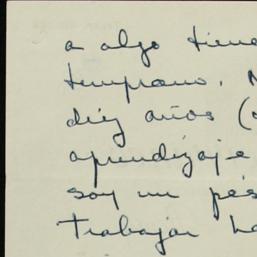 a algo tiene
temprano. N
diez años (
aprendizaje
soy un pés
Trabajar ha